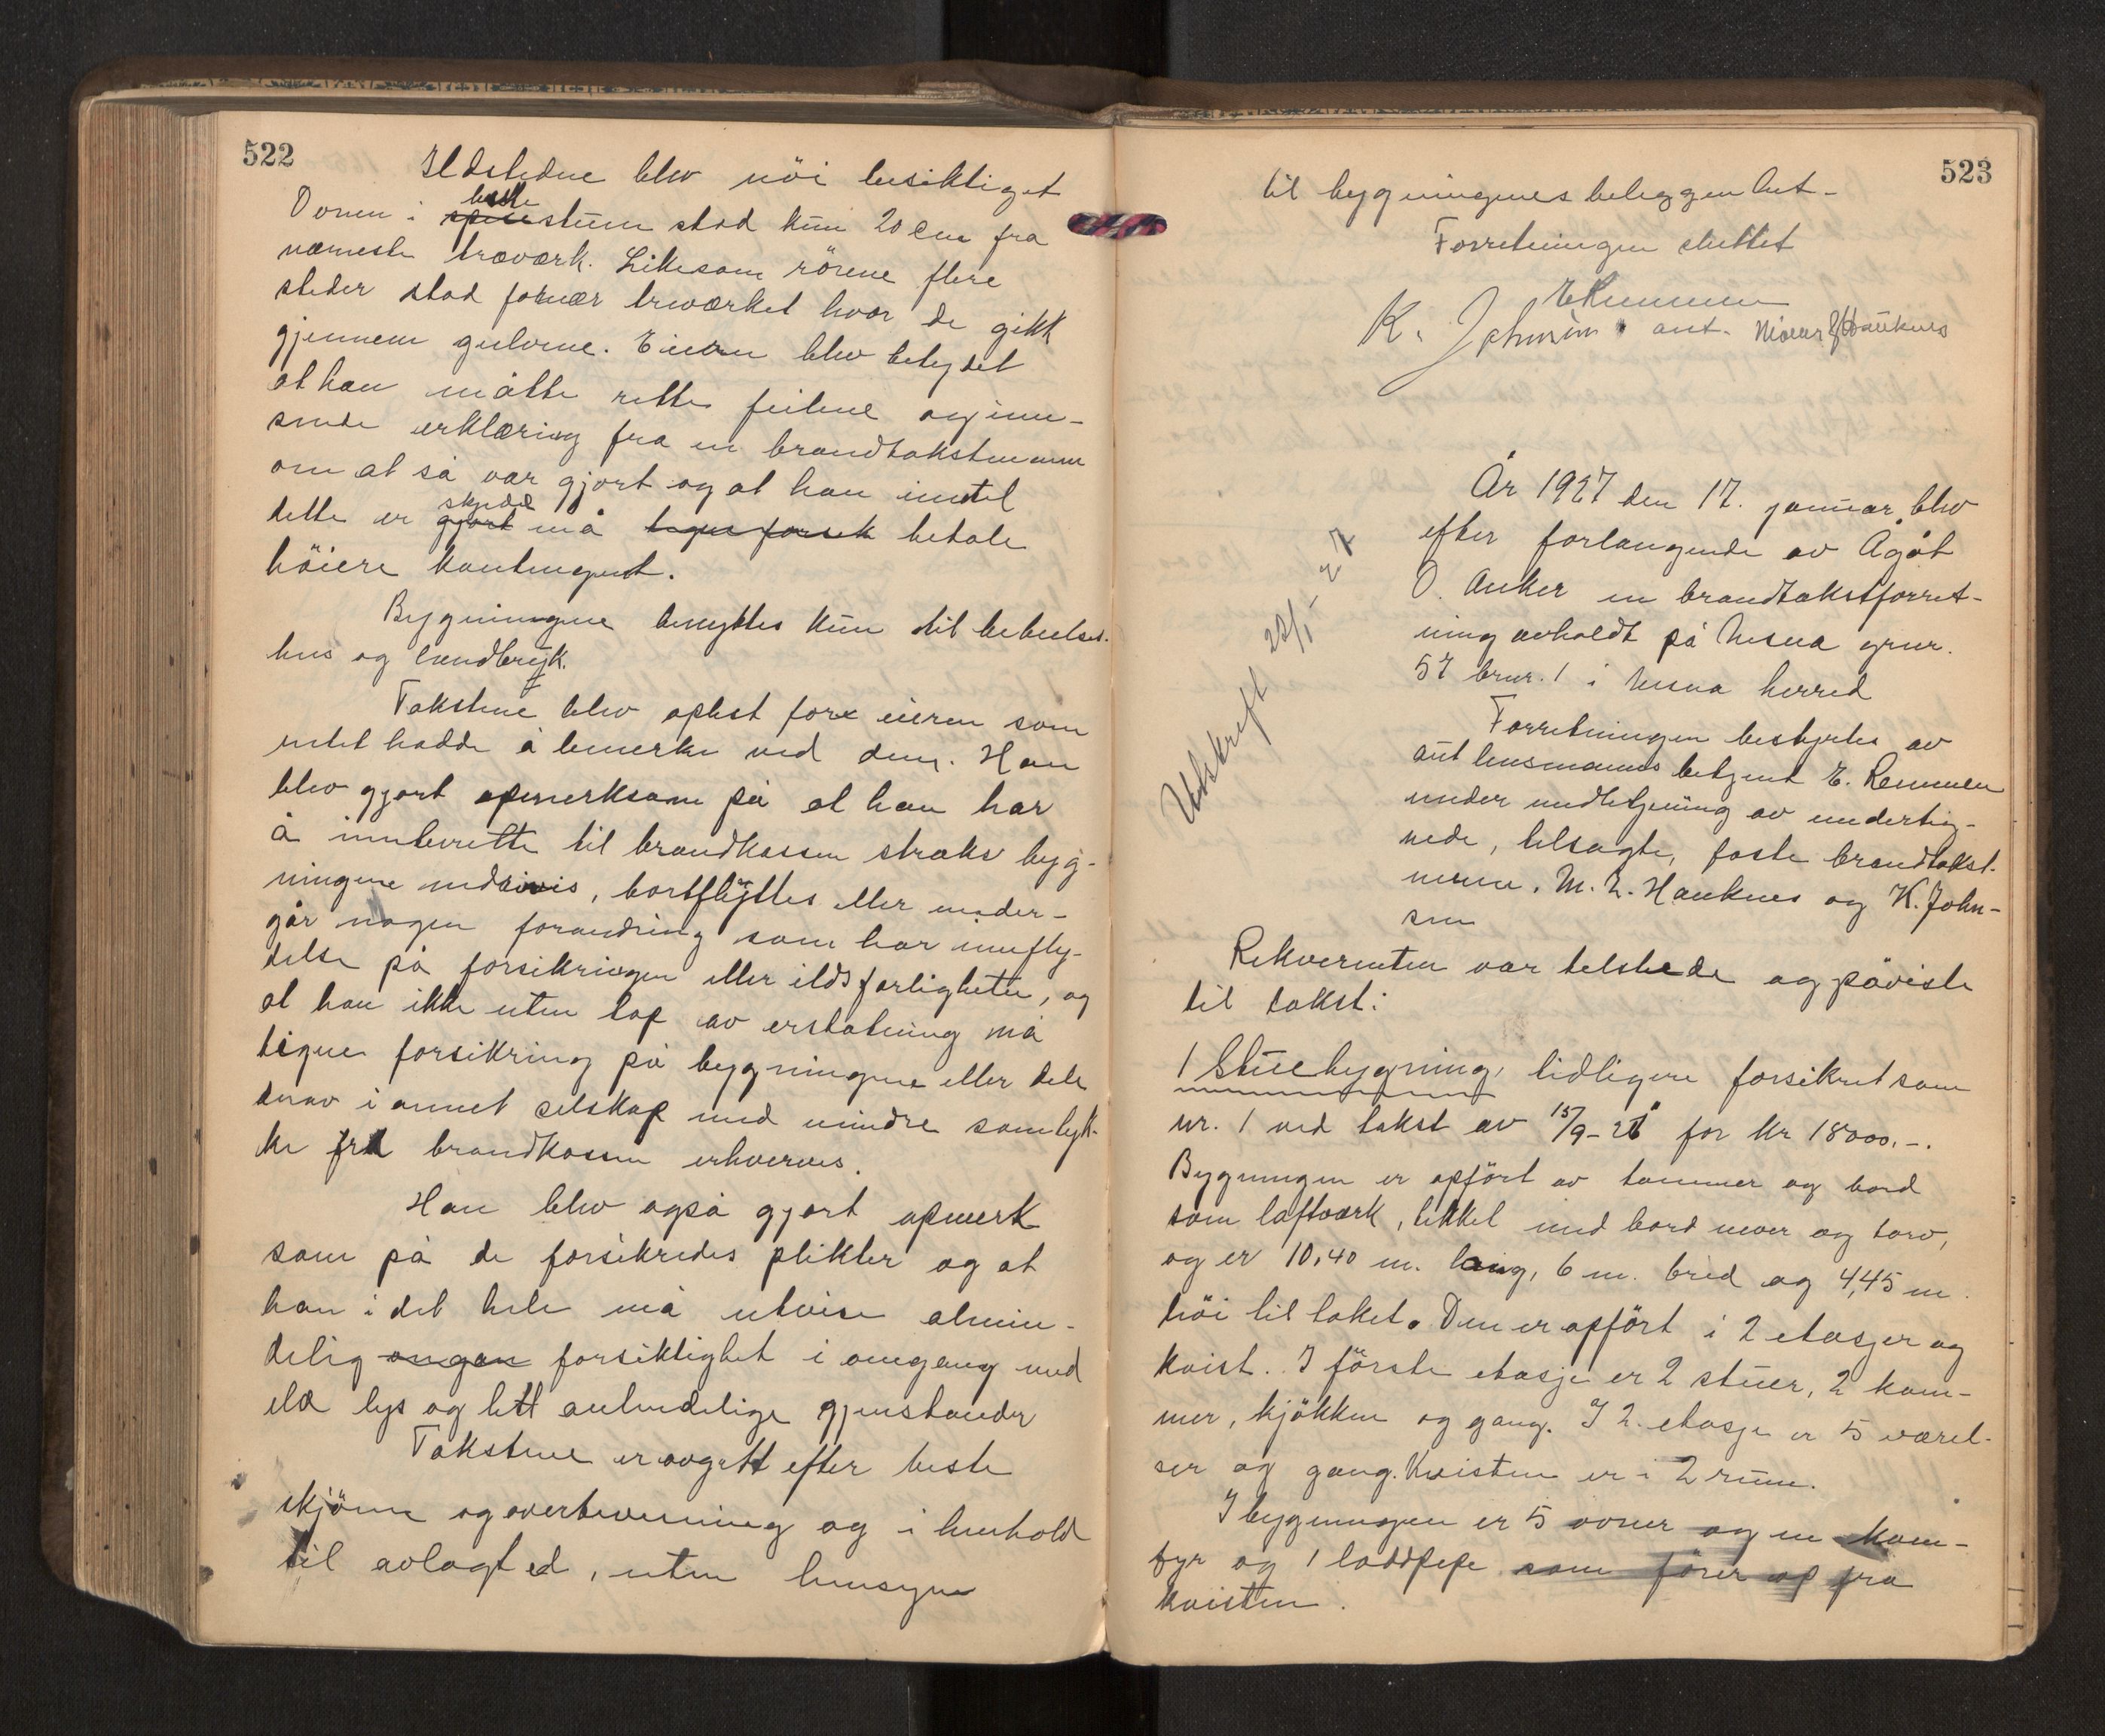 522
Ildstedene blev nöi besiktiget
Ovnen i beste spisestuen stod kun 20 cm fra
nærmeste træværk. Likesom rörene flere
steder stod for nær treværket hvor de gikk
gjennem gulvene. Eieren blev betydet
at han måtte rette feilene og inn-
sende erklæring fra en brandtakstmann
om at så var gjort og at han inntil
dette er gjort skjedd må betale
höiere kontingent.
Bygningene benyttes kun til beboelses-
hus og landbruk.
Takstene blev oplest for eieren som
intet hadde å bemerke ved dem. Han
blev gjort opmerksom på at han har
å innberette til brandkassen straks byg-
ningene nedrives, bortflyttes eller under-
går nogen forandring som har innfly-
delse på forsikringen eller ildsfarligheten, og
at han ikke uten tap av erstatning må
tegne forsikring på bygningene eller dele
derav i annet selskap med mindre samtyk-
ke fra brandkassen erhverves.
Han blev også gjort opmerk
som på de forsikredes plikter og at
han i det hele må utvise almin-
delig omgan forsiktighet i omgang med
ild lys og lett antendelige gjenstander
Takstene er avgitt efter beste
skjönn og overbevisning og i henhold
til avlagt ed, uten hensyn
523
til bygningenes beleggenhet-
Forretningen sluttet
E Remmen
K. Johnsen ant. Hauknes
Utskrift 22/1-27
År 1927 den 17. januar blev
efter forlangende av Ågåt
O. Anker en brandtakstforret-
ning avholdt på Nesna gnr.
57 brnr. 1 i Nesna herred
Forretningen bestyrtes av
aut lensmanns betjent E. Remmen
under medbetjening av underteg-
nede, tilsagte, faste brandtakst-
menn, M. L. Hauknes og K. John-
sen
Rekvirenten var tilstede og påviste
til takst:
1 Stuebygning, tidligere forsikret som
nr. 1 ved takst av 15/9-26 for kr 18000.-.
Bygningen er opfört av tømmer og bord
som laftværk, tekket med bord never og torv,
og er 10,40 m. lang, 6 m. bred og 4,45 m.
höi til taket. Den er opfört i 2 etasjer og
kvist. I förste etasje er 2 stuer, 2 kam-
mer, kjökken og gang. I 2. etasje er 5 værel-
ser og gang. Kvisten er i 2 rum.
I bygningen er 5 ovner og en kom-
fyr og 1 loddpipe som förer op fra
kvisten.